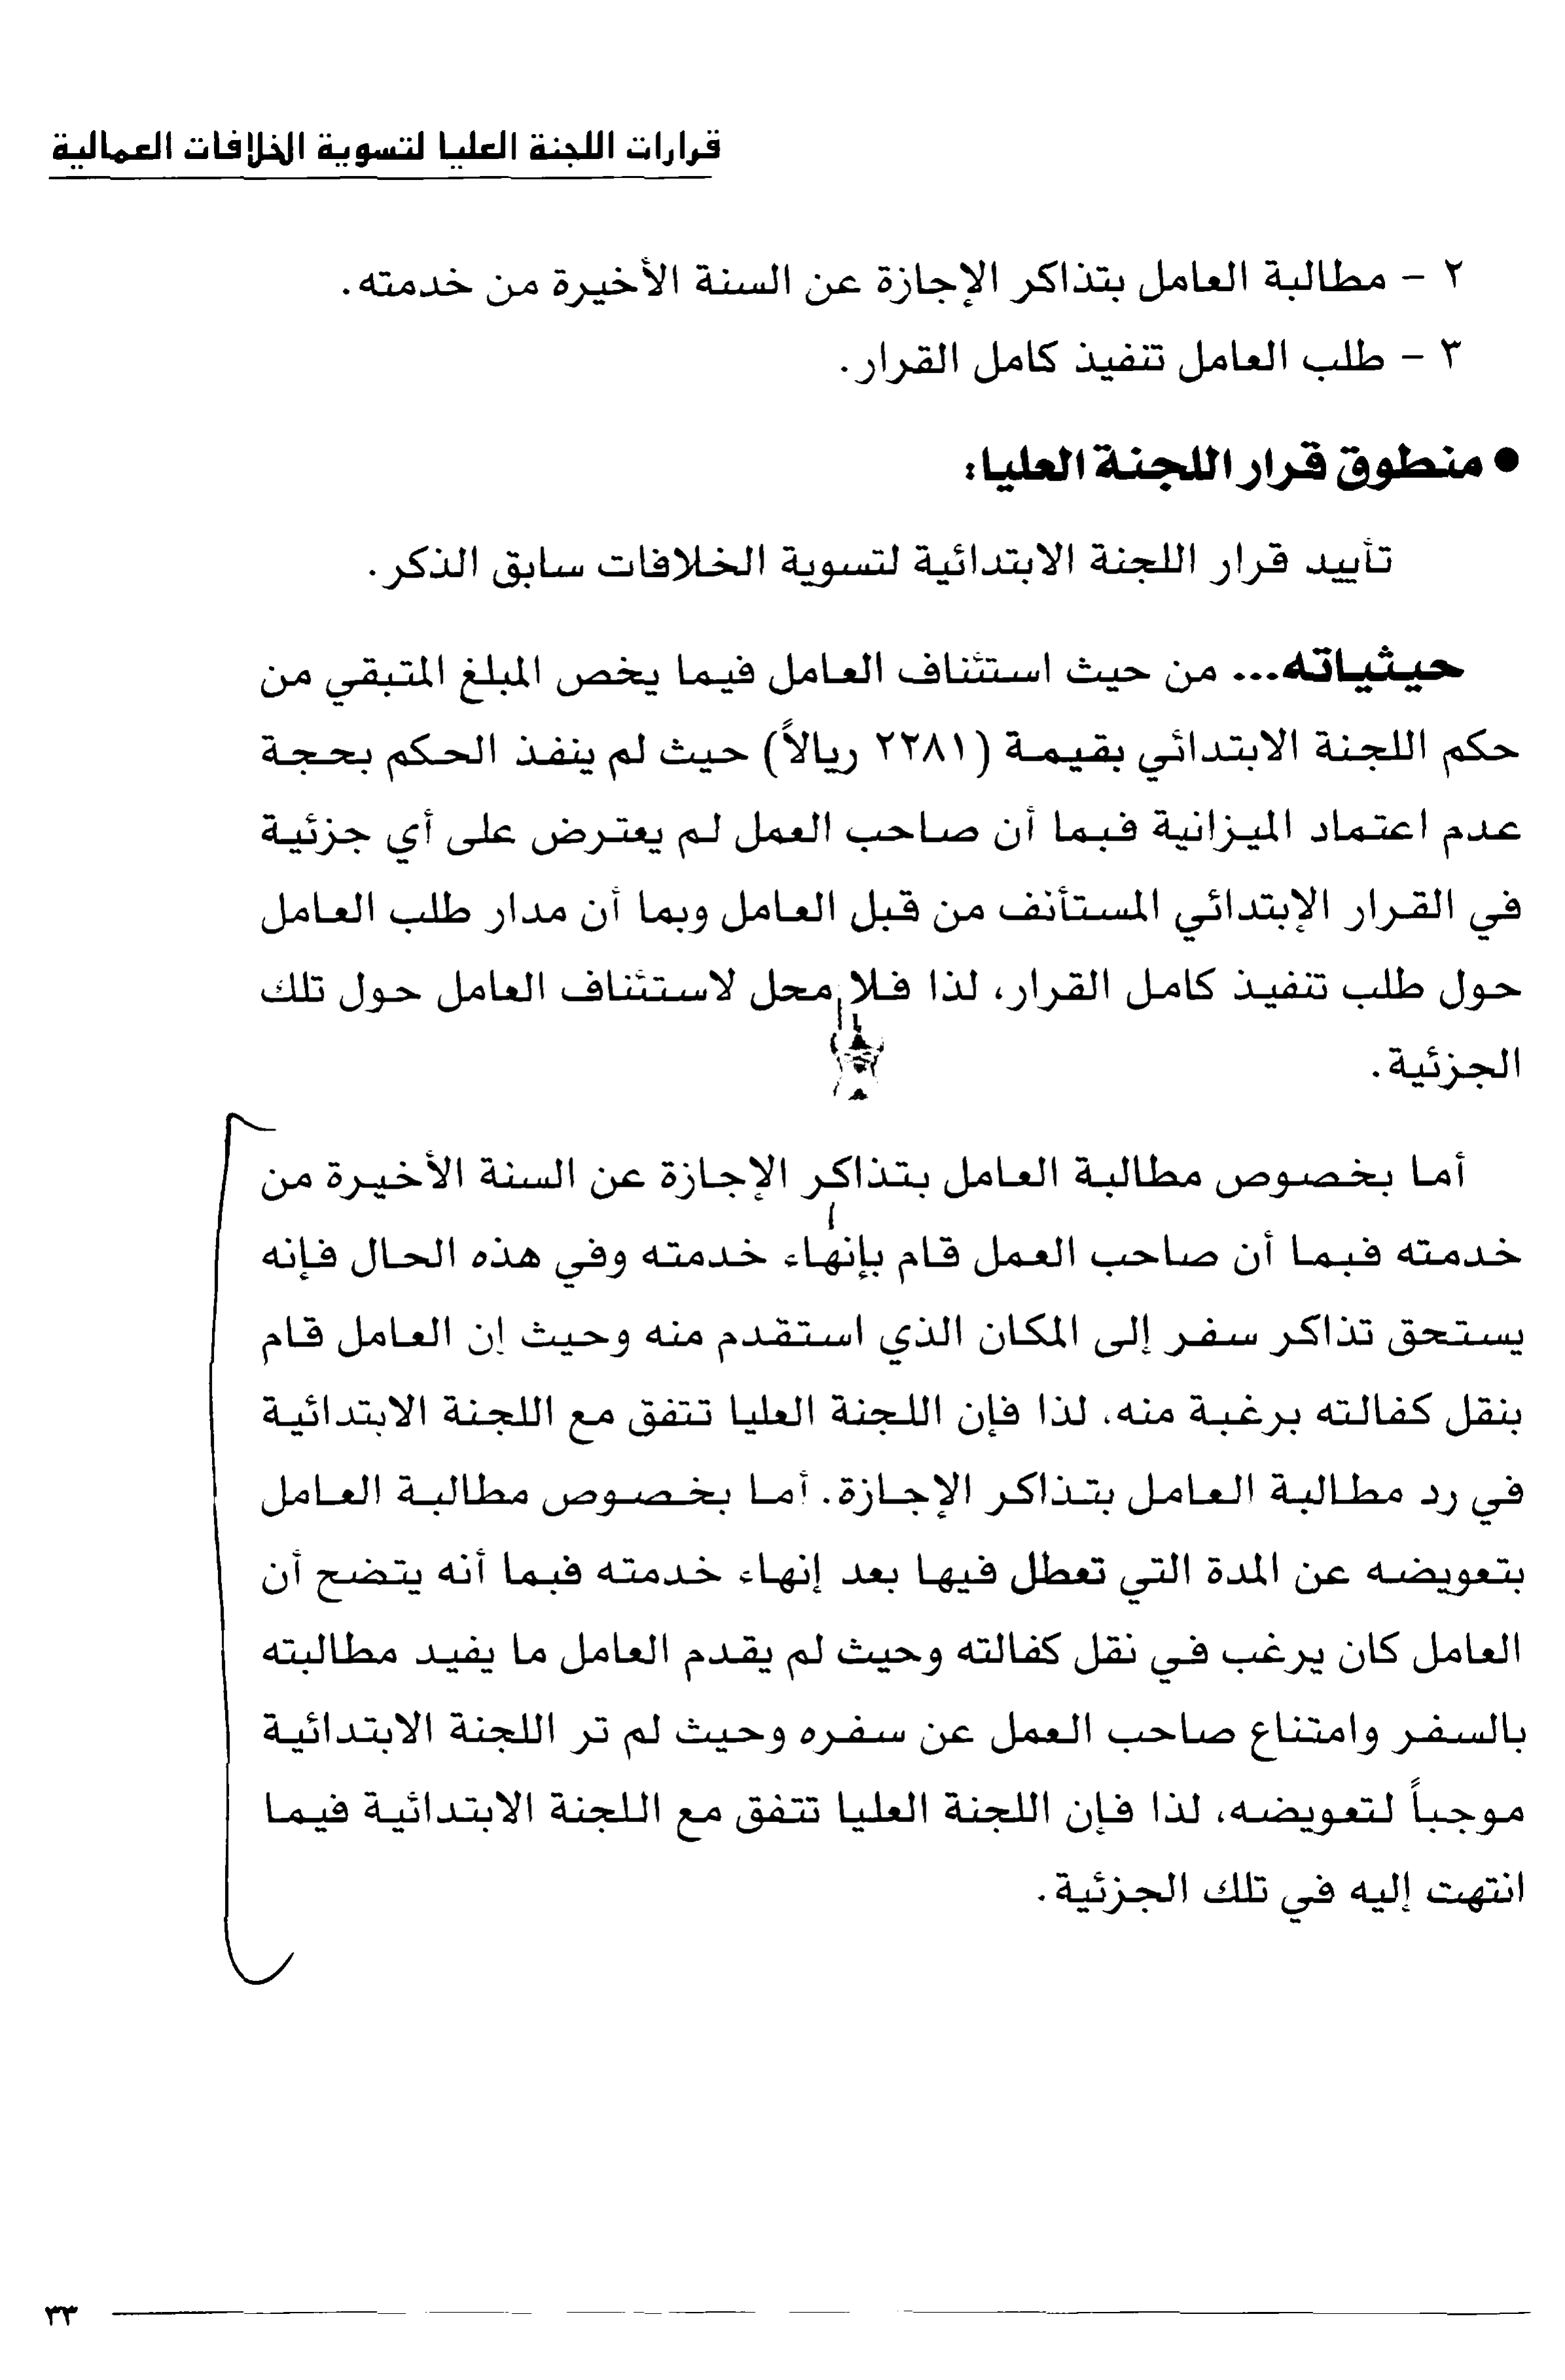 قرارات اللجنة العليا لتسوية الخلافات العمالية
٢ - مطالبة العامل بتذاكر الإجازة عن السنة الأخيرة من خدمته.
٣ - طلب العامل تنفيذ كامل القرار.
● منطوق قرار اللجنة العليا:
تأييد قرار اللجنة الابتدائية لتسوية الخلافات سابق الذكر.
حيثياته... من حيث استئناف العامل فيما يخص المبلغ المتبقي من
حكم اللجنة الابتدائي بقيمة (٢٢٨١ ريالاً) حيث لم ينفذ الحكم بحجة
عدم اعتماد الميزانية فبما أن صاحب العمل لم يعترض على أي جزئية
في القرار الإبتدائي المستأنف من قبل العامل وبما أن مدار طلب العامل
حول طلب تنفيذ كامل القرار، لذا فلا محل لاستئناف العامل حول تلك
الجزئية.
أما بخصوص مطالبة العامل بتذاكر الإجازة عن السنة الأخيرة من
خدمته فبما أن صاحب العمل قام بإنهاء خدمته وفي هذه الحال فإنه
يستحق تذاكر سفر إلى المكان الذي استقدم منه وحيث إن العامل قام
بنقل كفالته برغبة منه، لذا فإن اللجنة العليا تتفق مع اللجنة الابتدائية
في رد مطالبة العامل بتذاكر الإجازة. أما بخصوص مطالبة العامل
بتعويضه عن المدة التي تعطل فيها بعد إنهاء خدمته فبما أنه يتضح أن
العامل كان يرغب في نقل كفالته وحيث لم يقدم العامل ما يفيد مطالبته
بالسفر وامتناع صاحب العمل عن سفره وحيث لم تر اللجنة الابتدائية
موجباً لتعويضه، لذا فإن اللجنة العليا تتفق مع اللجنة الابتدائية فيما
انتهت إليه في تلك الجزئية.
٣٣